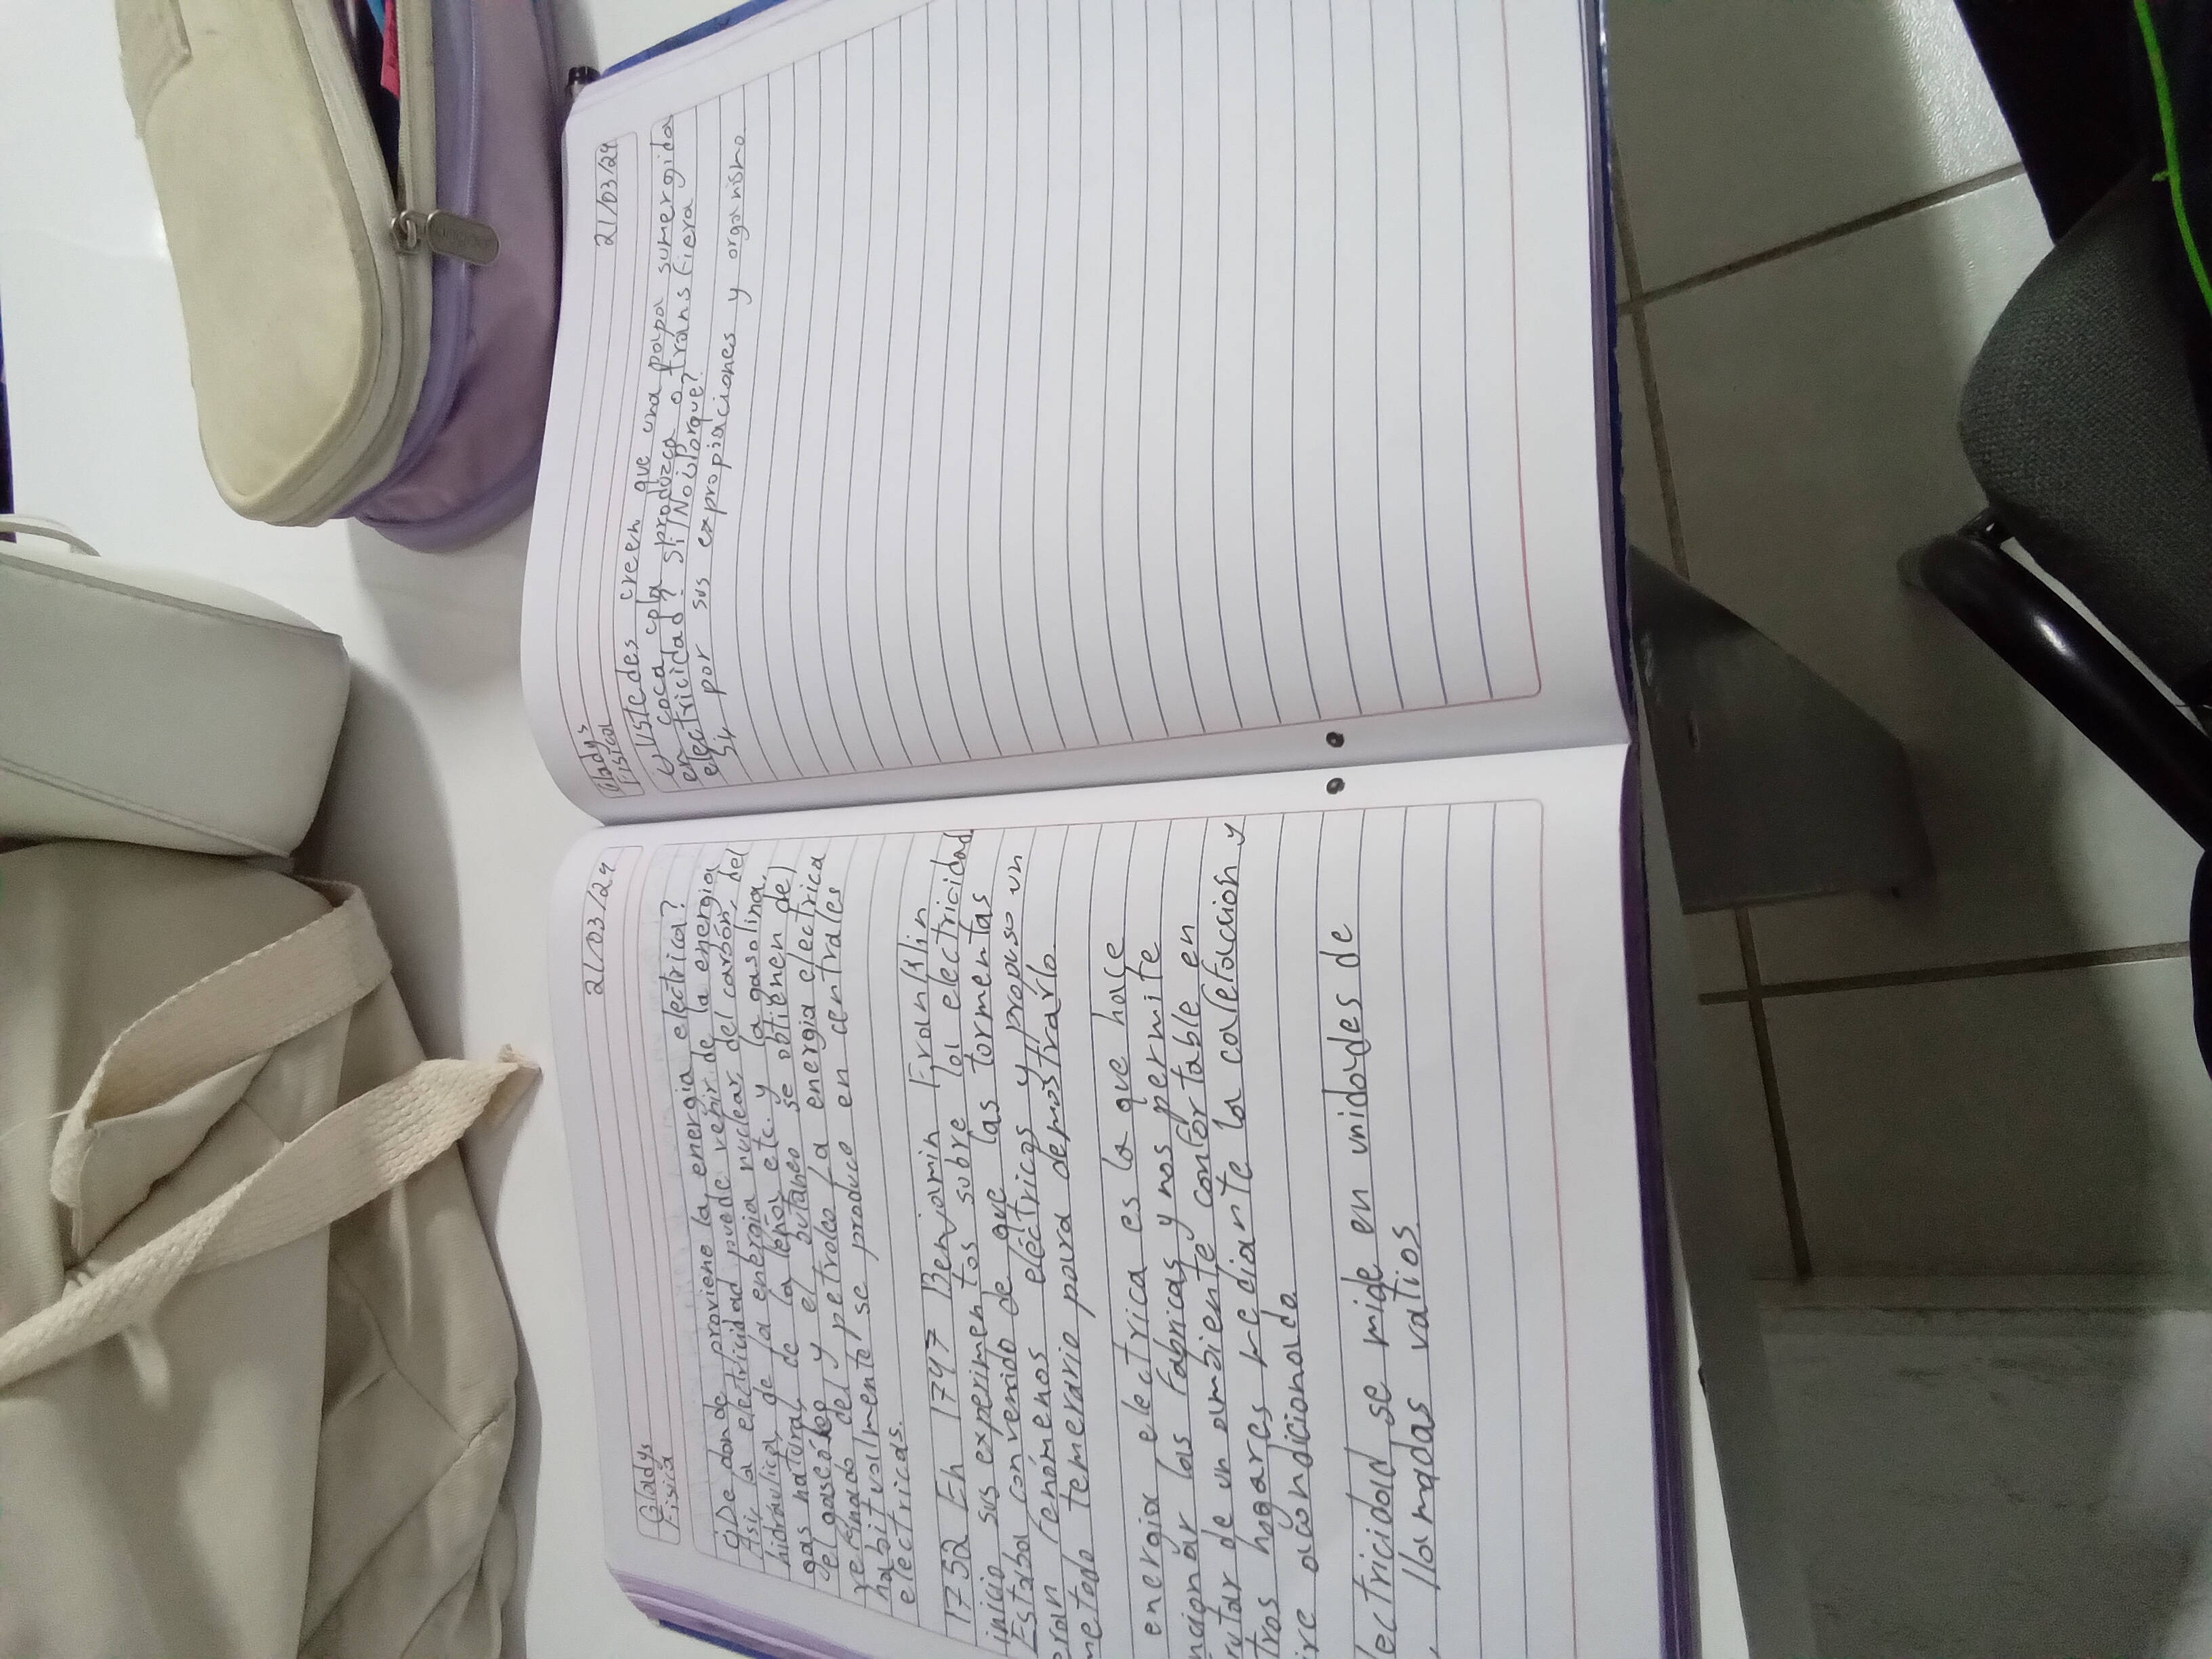 Gladys
Fisica
21/03/24
¿De donde proviene la energia electrica?
Asi, la electricidad puede venir de la energia
hidráulica, de la energia nuclear, del carbón, del
gas natural, de la leña, etc. y la gasolina,
del gasóleo y el butaneo se obtienen del
refinado del petroleo la energia electrica
habitualmente se produce en centrales
electricas.
1752 En 1747 Benjamin Franklin
inicio sus experimentos sobre la electricidad
Estaba convenido de que las tormentas
eran fenómenos eléctricos y propuso un
metodo temerario para demostrarlo.
energia electrica es la que hace
ncionar las Fabricas y nos permite
rutar de un ambiente confortable en
tros hogares mediante la calefaccion y
ire acondicionado.
lectricidad se mide en unidades de
, llamadas vatios
Gladys
Fisica
21/03/24
¿Ustedes creen que una papa sumergida
en coca cola produzca o transfiera
electricidad? Si/No ¿Porque?
Si por sus expropiaciones y organismo